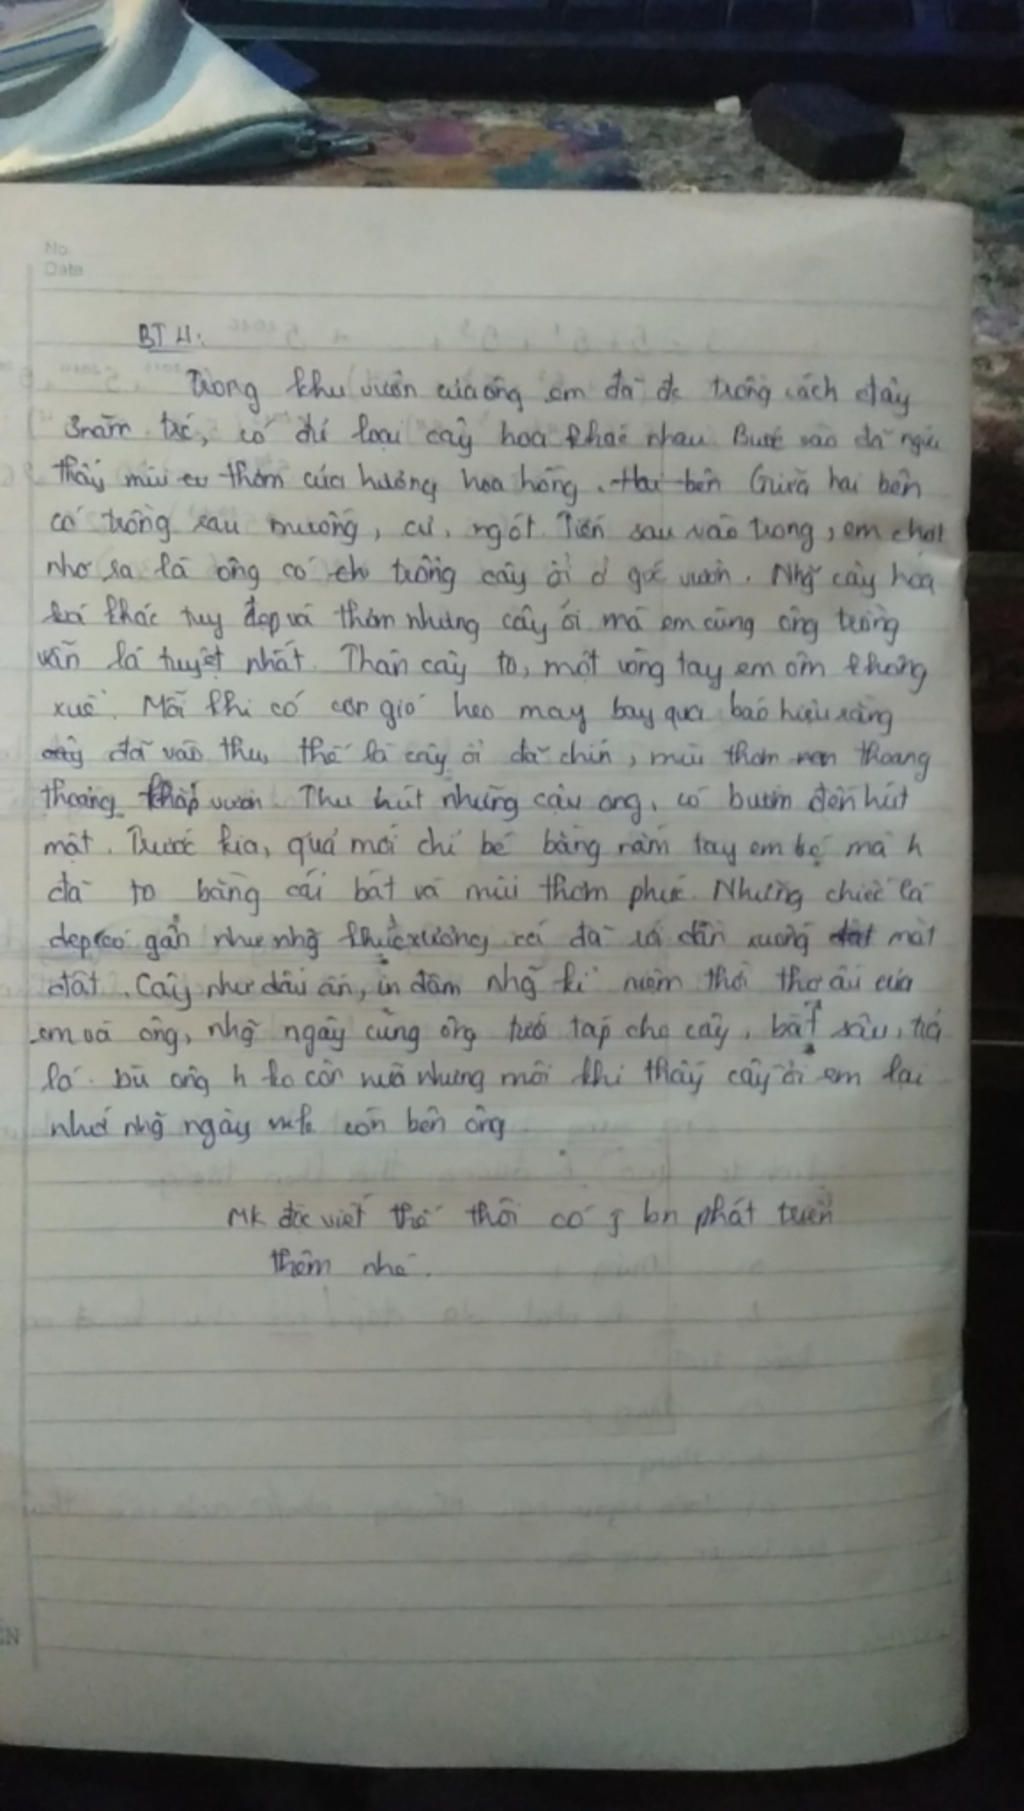 No.
Date
BT 4:
Trong khu vườn của ông em đã đc trồng cách đây
3 năm trc, có đủ loại cây hoa khác nhau Bước vào đã ngửi
thấy mùi thơm của hương hoa hồng. Hai bên Giữa hai bên
có trồng rau muống, cư, ngót. Tiến sau vào trong, em chợt
nhơ ra là ông có cho trồng cây ổi ở góc vườn. Nhg cây hoa
kia khác tuy đẹp và thơm nhưng cây ổi mà em cùng ông trồng
vẫn là tuyệt nhất. Thân cây to, một vòng tay em ôm không
xuể. Mỗi khi có cơn gió heo may bay qua báo hiệu rằng
đã vào thu, thế là cây ổi đã chín, mùi thơm thoang
thoảng khắp vườn. Thu hút những cậu ong, cô bướm đến hút
mật. Trước kia, quả mới chỉ bé bằng nắm tay em bé mà h
đã to bằng cái bát và mùi thơm phức. Những chiếc lá
dẹp có gần như nhg khúc xương cá đã rủ dần xuống đất mặt
đất. Cây như dấu ấn, in đậm nhg kỉ niệm thời thơ ấu của
em và ông, nhg ngày cùng ông tưới táp cho cây, bắt sâu, tỉa
lá. Dù ông h ko còn nữa nhưng mỗi khi thấy cây ổi em lại
nhớ nhg ngày còn bên ông
MK đc viết thế thôi có j bn phát triển
thêm nhé.